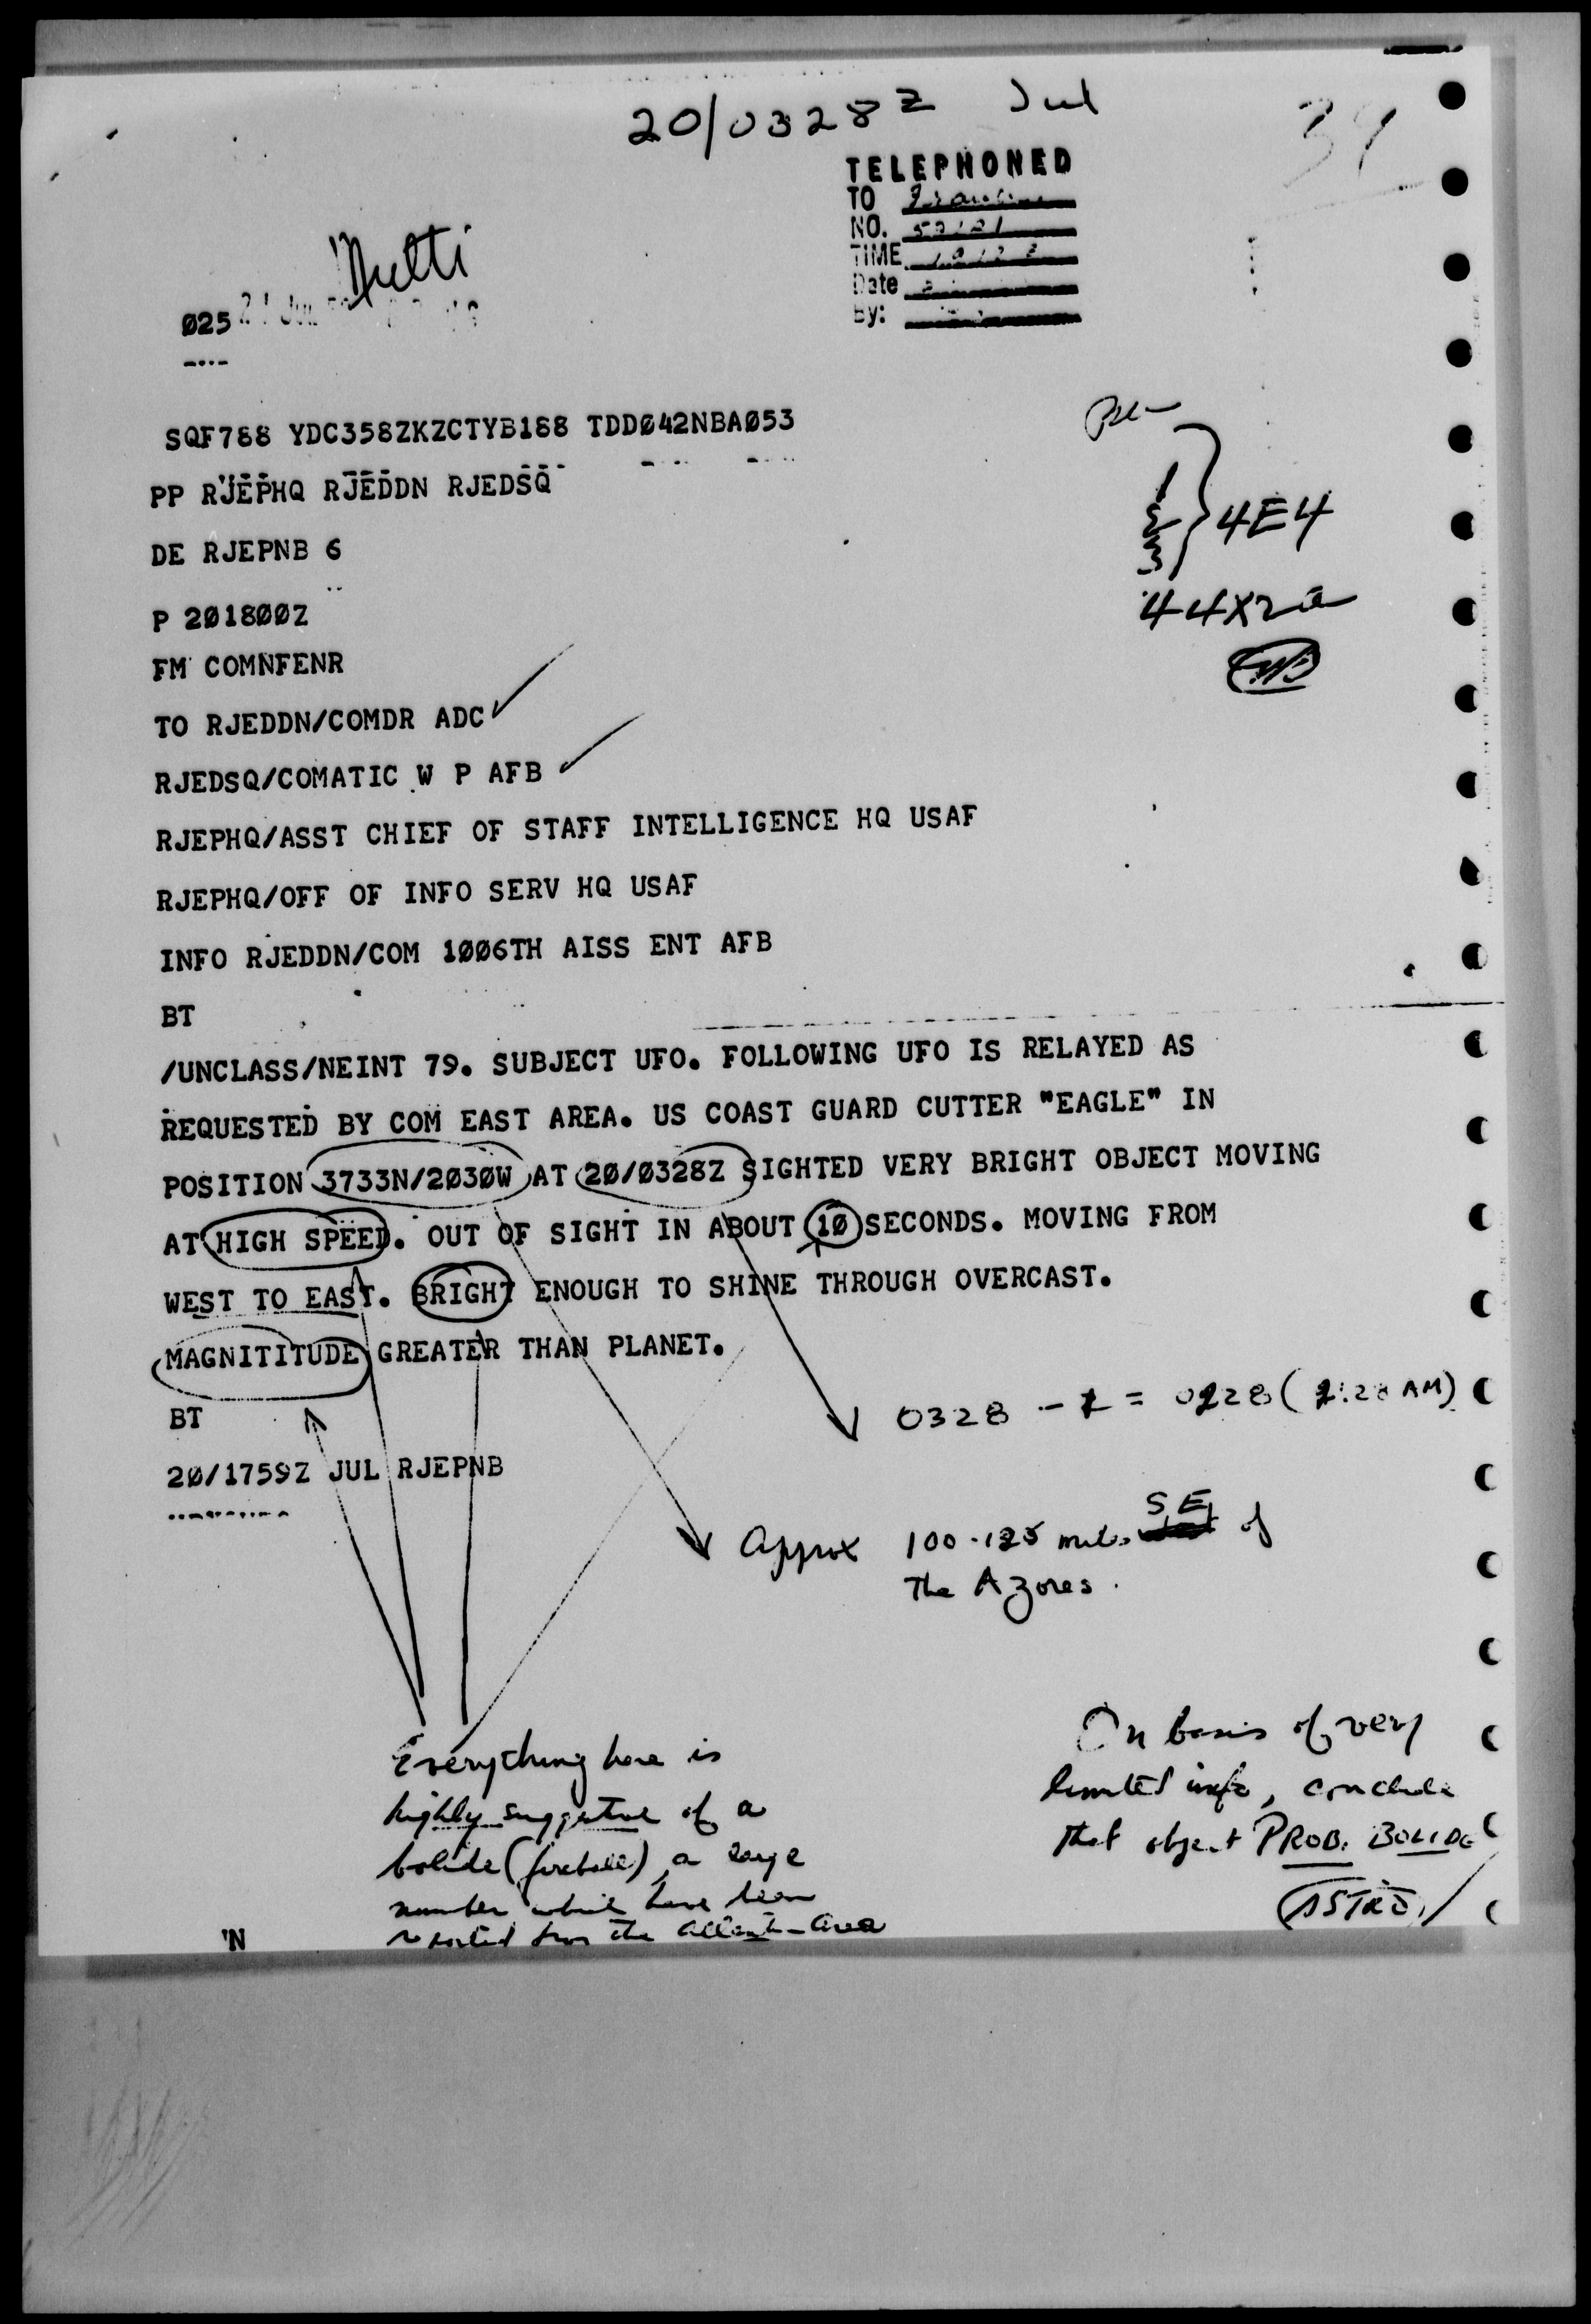 20/0328Z Jul
TELEPHONED
TO
NO.
TIME
Date
By:
Multi
025
SQF788 YDC358ZKZCTYB188 TDDØ42NBAØ53
PP RJEPHQ RJEDDN RJEDSQ
DE RJEPNB 6
P 2Ø18ØØZ
FM COMNFENR
TO RJEDDN/COMDR ADC
RJEDSQ/COMATIC W P AFB
RJEPHQ/ASST CHIEF OF STAFF INTELLIGENCE HQ USAF
RJEPHQ/OFF OF INFO SERV HQ USAF
INFO RJEDDN/COM 1ØØ6TH AISS ENT AFB
BT
4E4
44X2a
/UNCLASS/NEINT 79. SUBJECT UFO. FOLLOWING UFO IS RELAYED AS
REQUESTED BY COM EAST AREA. US COAST GUARD CUTTER "EAGLE" IN
POSITION 3733N/2Ø3ØW AT 2Ø/Ø328Z SIGHTED VERY BRIGHT OBJECT MOVING
AT HIGH SPEED. OUT OF SIGHT IN ABOUT 1Ø SECONDS. MOVING FROM
WEST TO EAST. BRIGHT ENOUGH TO SHINE THROUGH OVERCAST.
MAGNITITUDE GREATER THAN PLANET.
BT
2Ø/1759Z JUL RJEPNB
0328 - = 0228 (2:28 AM)
Approx 100-125 miles SE of
The Azores.
Everything here is
highly suggestive of a
bolide (fireball), a large
number which have been
reported from the Atlantic Area
On basis of very
limited info, conclude
that object PROB. BOLIDE
ASTRO
'N